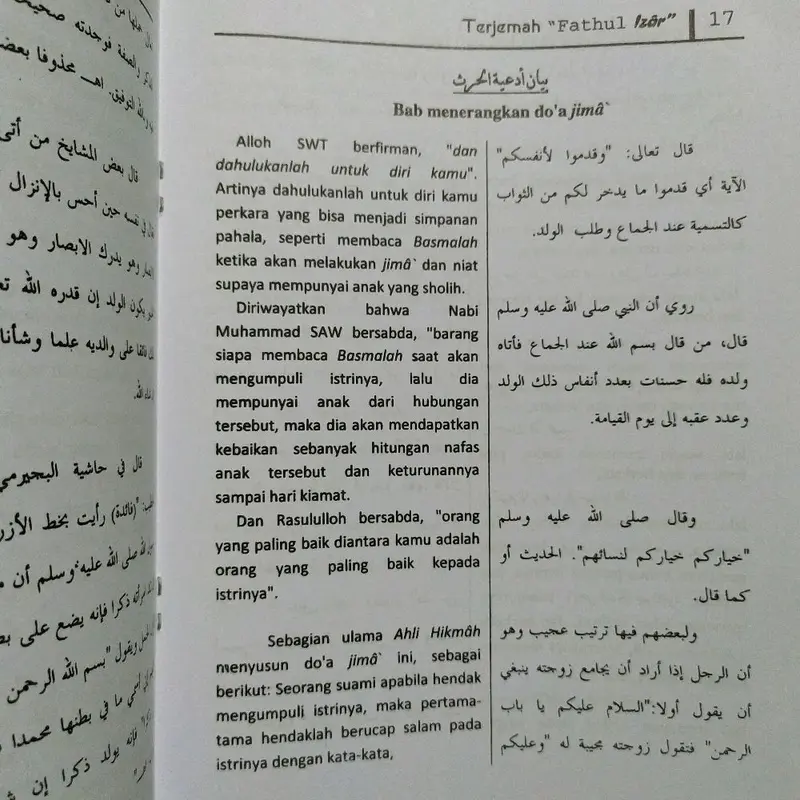 والصفة فوجدته صحيحا
التوفيق. اهـ محذوفا بعضه
قال بعض المشايخ من أتى
في نفسه حين أحس بالإنزال
وهو يدرك الابصار وهو
يكون الولد إن قدره الله
على والديه علما وشأنا
الله.
قال في حاشية البجيرمي
(فائدة) رأيت بخط الأزرق
صلى الله عليه وسلم أن
ذكرا فإنه يضع على
ويقول "بسم الله الرحمن
ما في بطنها محمدا
فإنه يولد ذكرا إن
Terjemah "Fathul Izâr" 17
بيان أدعية الحرث
Bab menerangkan do'a jimâ`
Alloh SWT berfirman, "dan
dahulukanlah untuk diri kamu".
Artinya dahulukanlah untuk diri kamu
perkara yang bisa menjadi simpanan
pahala, seperti membaca Basmalah
ketika akan melakukan jimâ` dan niat
supaya mempunyai anak yang sholih.
Diriwayatkan bahwa Nabi
Muhammad SAW bersabda, "barang
siapa membaca Basmalah saat akan
mengumpuli istrinya, lalu dia
mempunyai anak dari hubungan
tersebut, maka dia akan mendapatkan
kebaikan sebanyak hitungan nafas
anak tersebut dan keturunannya
sampai hari kiamat.
Dan Rasululloh bersabda, "orang
yang paling baik diantara kamu adalah
orang yang paling baik kepada
istrinya".
Sebagian ulama Ahli Hikmâh
menyusun do'a jimâ` ini, sebagai
berikut: Seorang suami apabila hendak
mengumpuli istrinya, maka pertama-
tama hendaklah berucap salam pada
istrinya dengan kata-kata,
قال تعالى: "وقدموا لأنفسكم"
الآية أي قدموا ما يدخر لكم من الثواب
كالتسمية عند الجماع وطلب الولد.
روي أن النبي صلى الله عليه وسلم
قال، من قال بسم الله عند الجماع فأتاه
ولده فله حسنات بعدد أنفاس ذلك الولد
وعدد عقبه إلى يوم القيامة.
وقال صلى الله عليه وسلم
"خياركم خياركم لنسائهم". الحديث أو
كما قال.
ولبعضهم فيها ترتيب عجيب وهو
أن الرجل إذا أراد أن يجامع زوجته ينبغي
أن يقول أولا:"السلام عليكم يا باب
الرحمن" فتقول زوجته مجيبة له "وعليكم